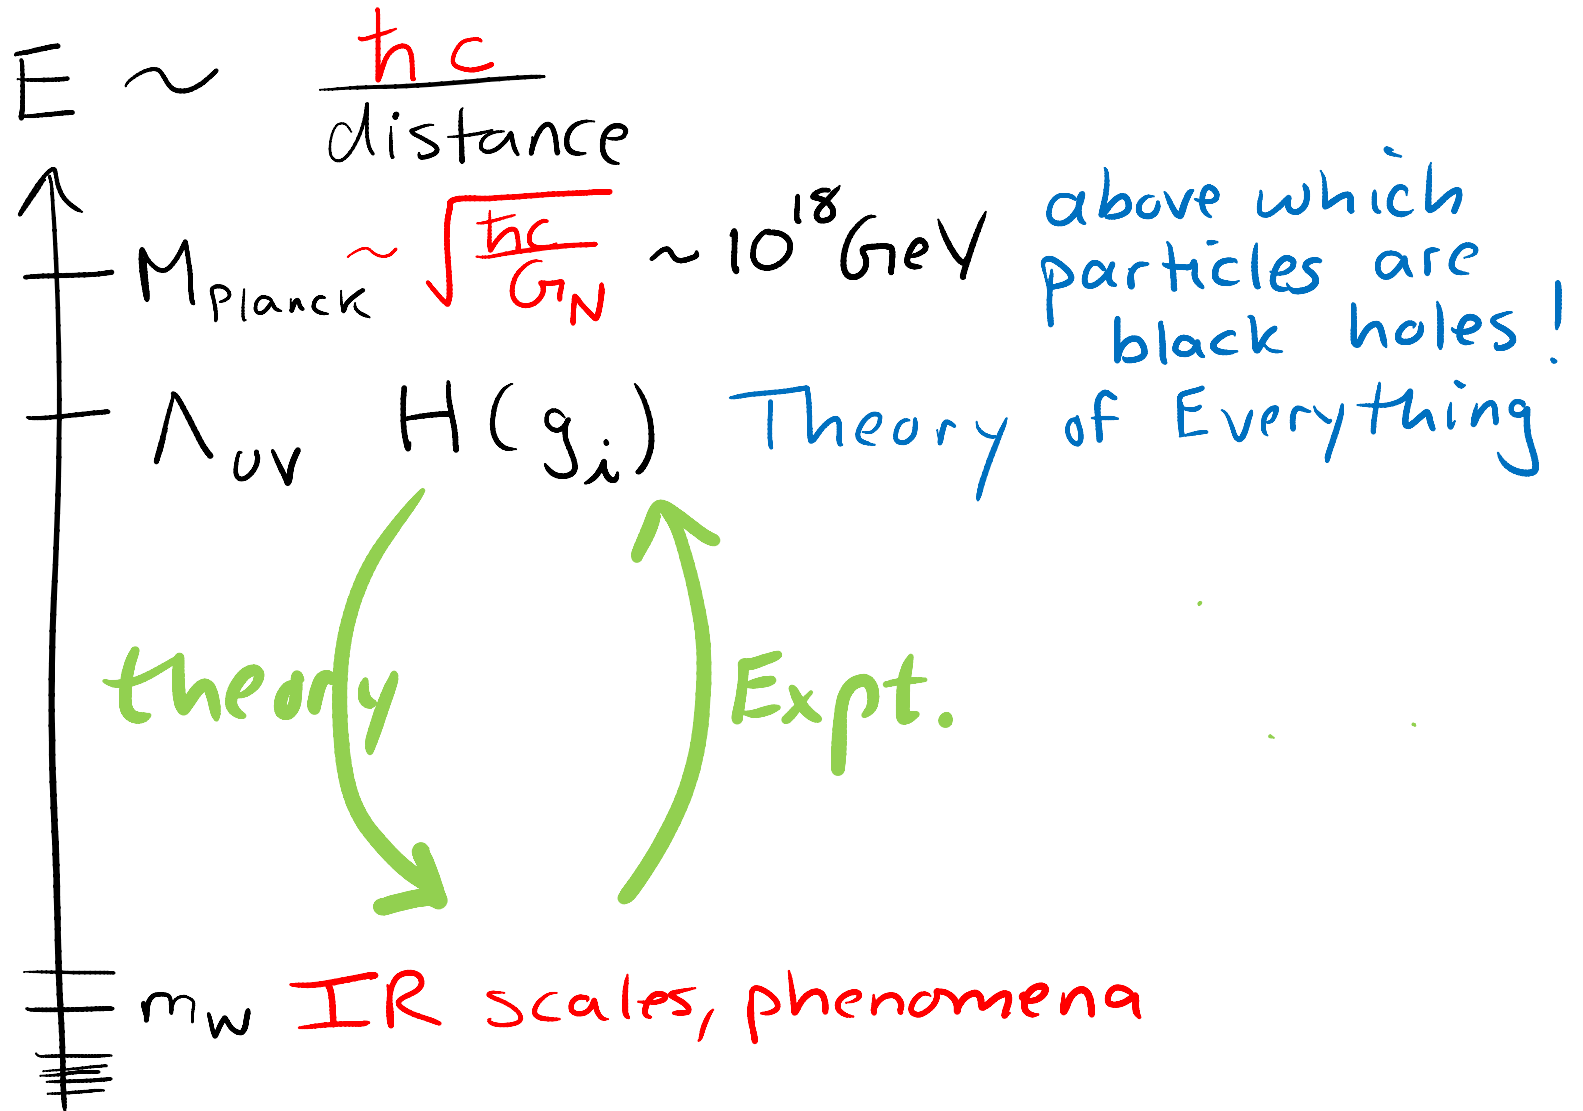 E ~ ħc / distance
M_Planck ~ √(ħc / G_N) ~ 10^18 GeV
above which
particles are
black holes!
Λ_UV H(g_i) Theory of Everything
theory Expt.
m_W IR scales, phenomena